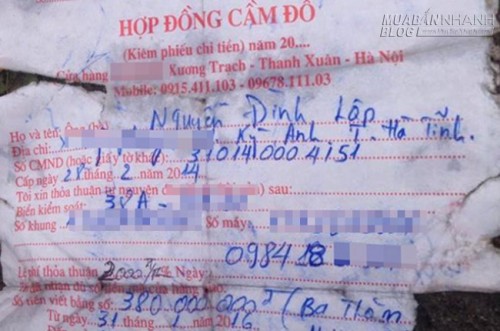 MUABANNHANH
BLOG
HỢP ĐỒNG CẦM ĐỒ
(Kiêm phiếu chi tiền) năm 20....
Cửa hàng Xương Trạch - Thanh Xuân - Hà Nội
Mobile: 0915.411.103 - 09678.111.03
Họ và tên: ông (bà) Nguyễn Đình Lập
Địa chỉ: Kỳ Anh T. Hà Tĩnh.
Số CMND (hoặc giấy tờ khác) 31014000 4151
Cấp ngày 28 tháng 2 năm 2014
Tôi xin thỏa thuận tự nguyện sau:
Biển kiểm soát: 38A -
Số khung Số máy:
0984 28
Lệ phí thỏa thuận 2000đ/ Ngày:
Số tiền viết bằng số: 380 000 000đ / (Ba Trăm
Từ ngày 31 tháng 1 năm 2016